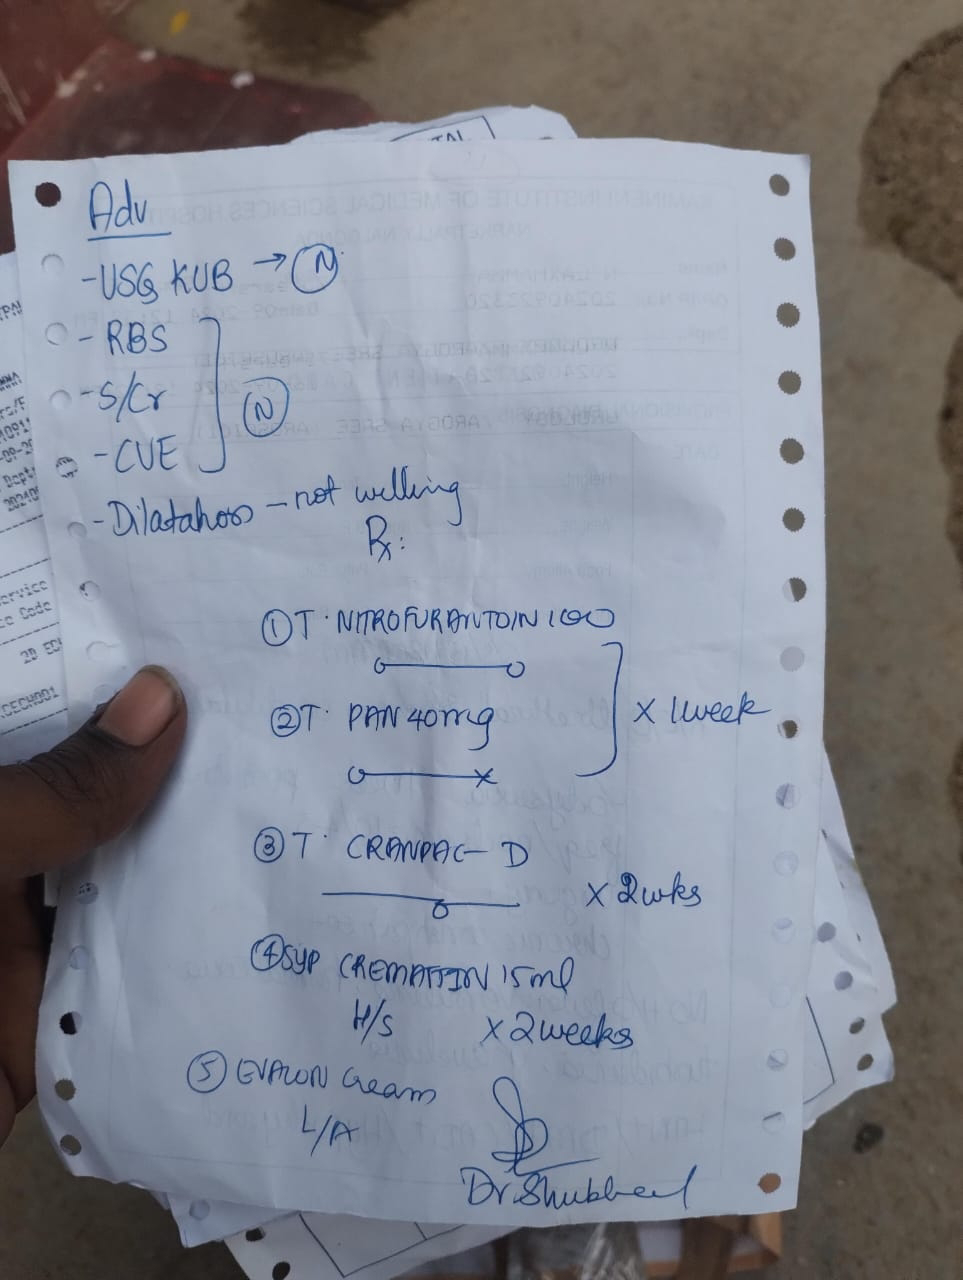 TAL
Adv
-USG KUB → (N)
- RBS
- S/Cr
- CUE
(N)
- Dilatation - not willing
Rx:
① T. NITROFURANTOIN 100
② T. PAN 40mg
x 1 week
③ T. CRANPAC-D
x 2 wks
④ SYP CREMAFFIN 15ml
H/S x 2 weeks
⑤ EVALON Cream
L/A
Dr. Shubham
ervice
e Code
2D EC
CECH001